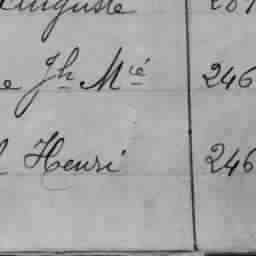 Auguste
e Jh Mié 246
Henri 246